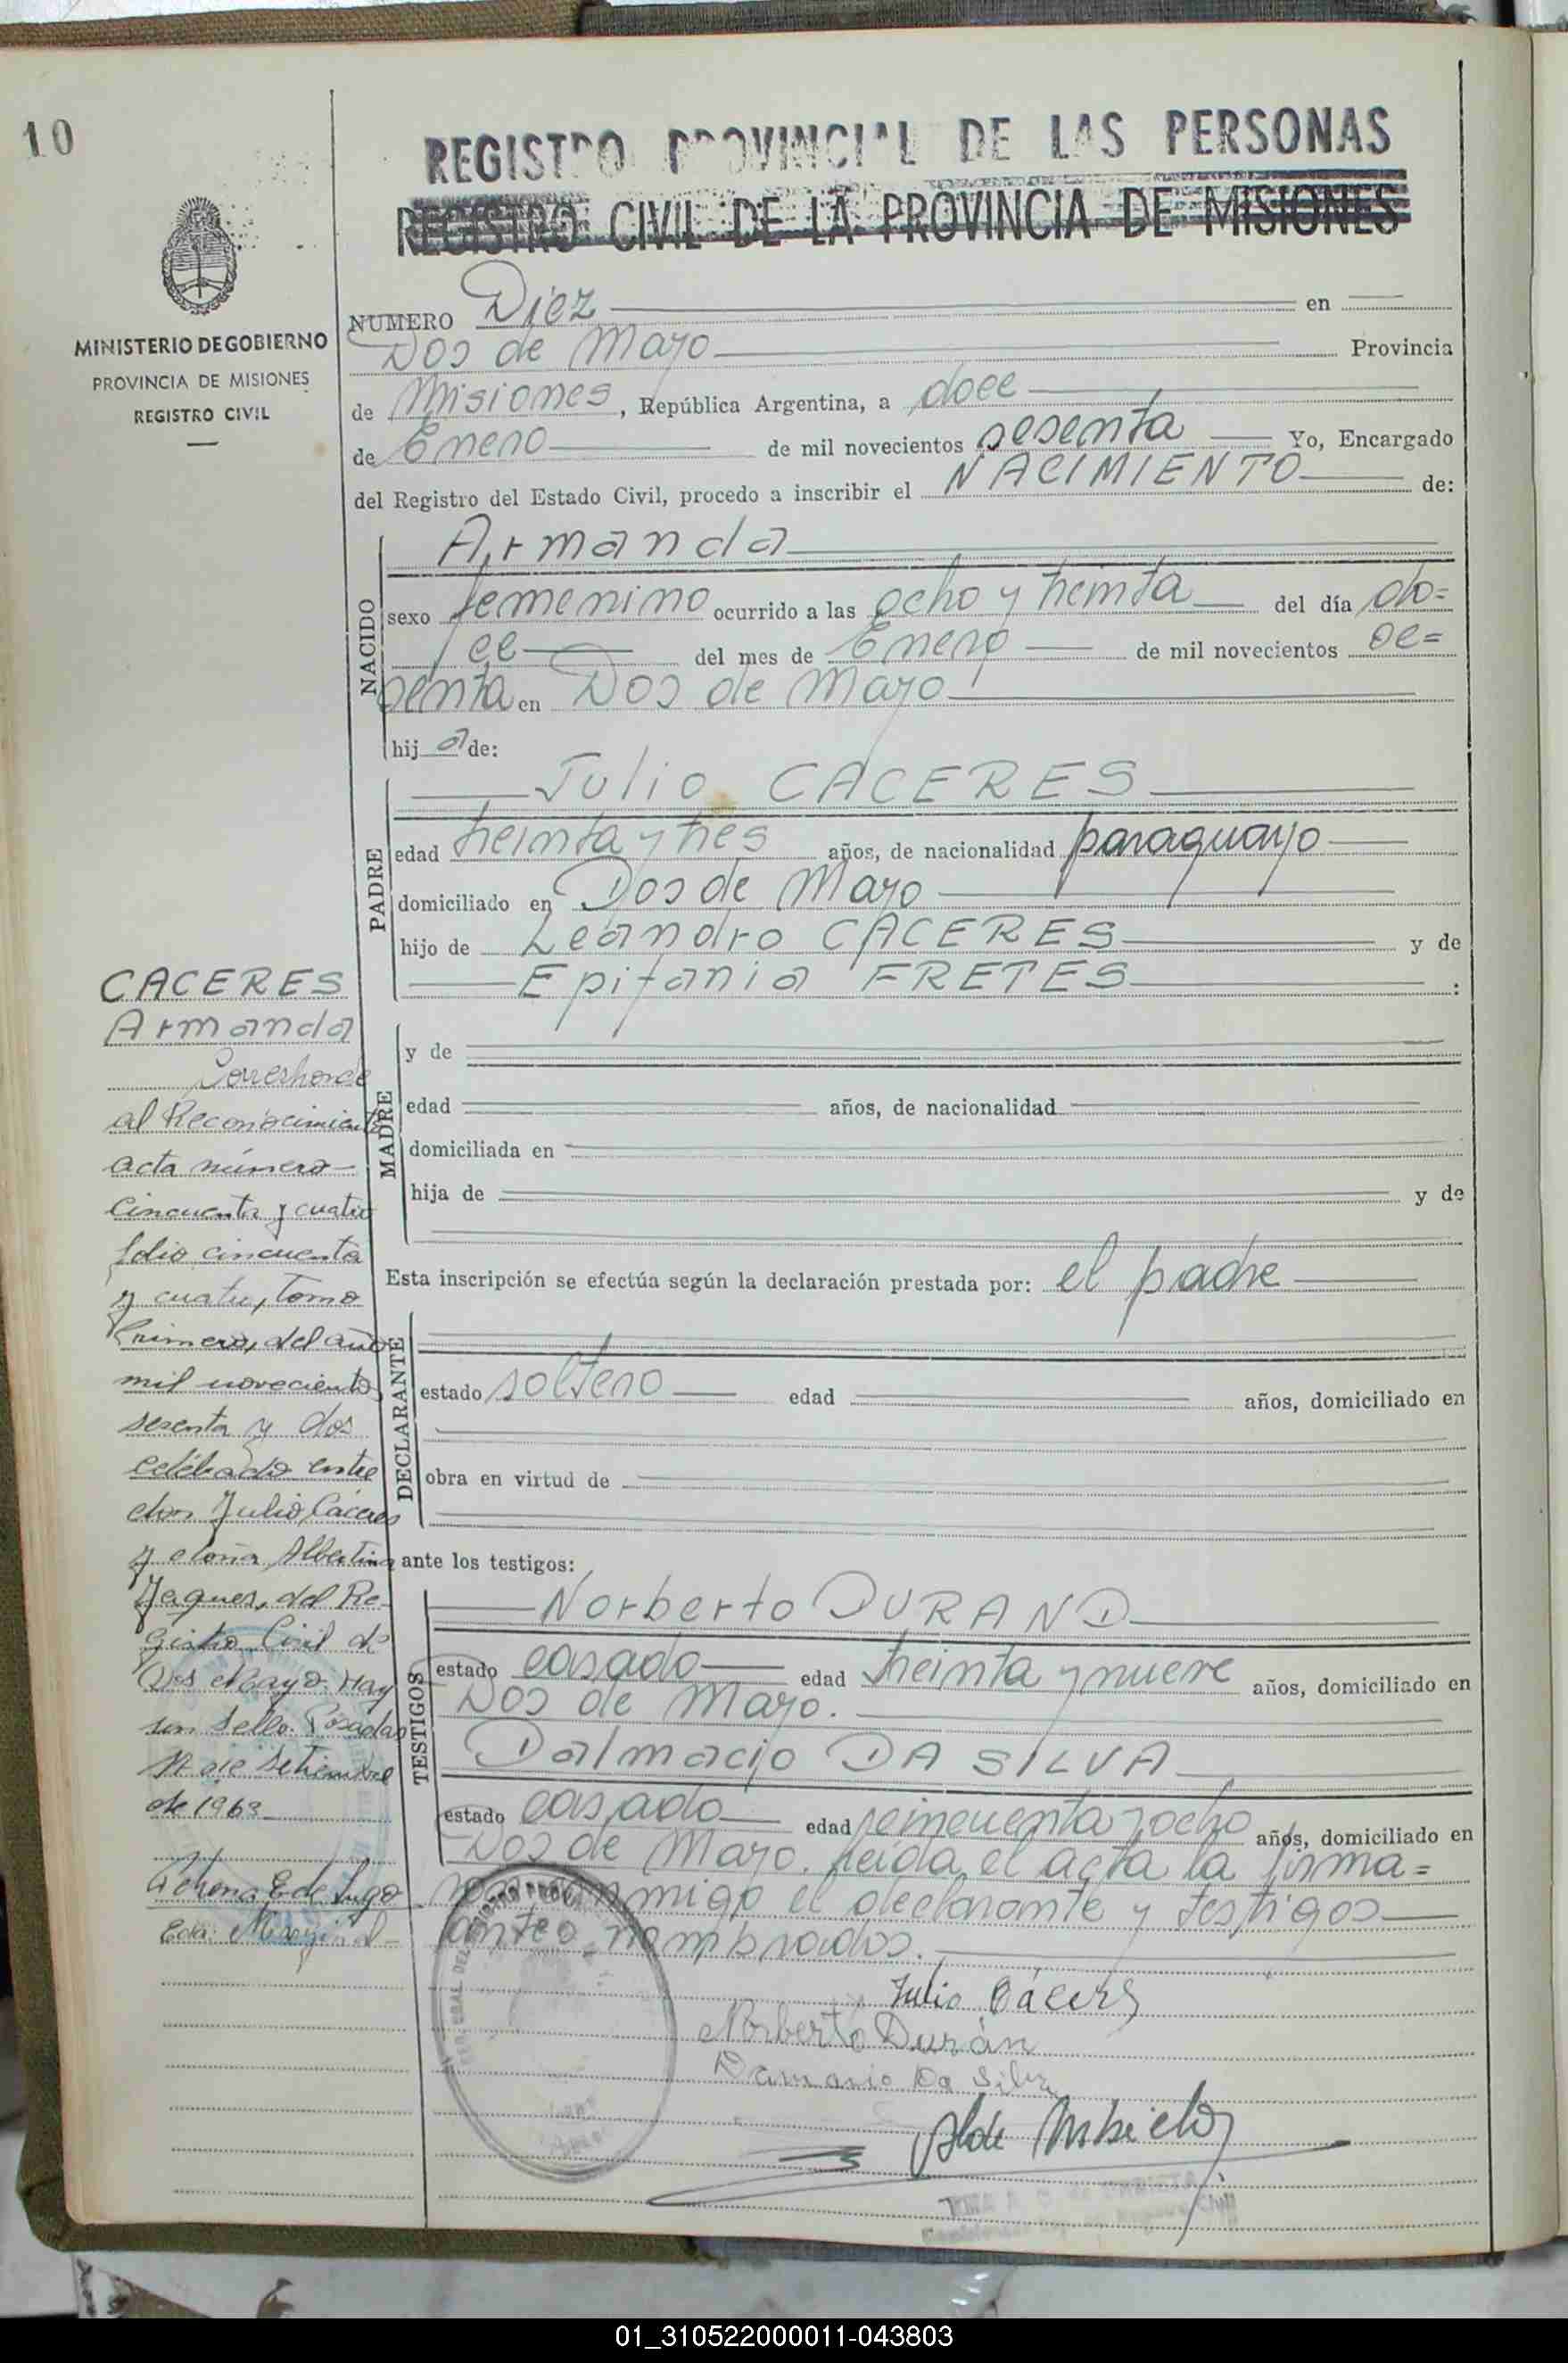 10
REGISTRO PROVINCIAL DE LAS PERSONAS
REGISTRO CIVIL DE LA PROVINCIA DE MISIONES
MINISTERIO DE GOBIERNO
PROVINCIA DE MISIONES
REGISTRO CIVIL
NUMERO Diez en
Dos de Mayo Provincia
de Misiones, República Argentina, a doce
de Enero de mil novecientos sesenta Yo, Encargado
del Registro del Estado Civil, procedo a inscribir el NACIMIENTO de:
NACIDO
Armanda
sexo femenino ocurrido a las ocho y treinta del día do=
ce del mes de Enero de mil novecientos se=
senta en Dos de Mayo
hij a de:
PADRE
Julio CACERES
edad treinta y tres años, de nacionalidad paraguayo
domiciliado en Dos de Mayo
hijo de Leandro CACERES y de
Epifania FRETES :
MADRE
y de
edad años, de nacionalidad
domiciliada en
hija de y de
Esta inscripción se efectúa según la declaración prestada por: el padre
DECLARANTE
estado soltero edad años, domiciliado en
obra en virtud de
ante los testigos:
TESTIGOS
Norberto DURAND
estado casado edad treinta y nueve años, domiciliado en
Dos de Mayo.
Dalmacio DA SILVA
estado casado edad cincuenta y ocho años, domiciliado en
Dos de Mayo. Leida el acta la firma=
ron conmigo el declarante y testigos
antes nombrados.
Julio Cáceres
Norberto Durán
Da Silva
CACERES
Armanda
Corresponde
al Reconocimiento
acta número
Cincuenta y cuatro
folio cincuenta
y cuatro, tomo
Primero, del año
mil novecientos
sesenta y dos
celebrado entre
don Julio Cáceres
y doña Albertina
Jaques, del Re-
gistro Civil de
Dos Mayo. Hay
un sello. Posadas
de Setiembre
de 1963
E de Lugo
Marginal
01_310522000011-043803